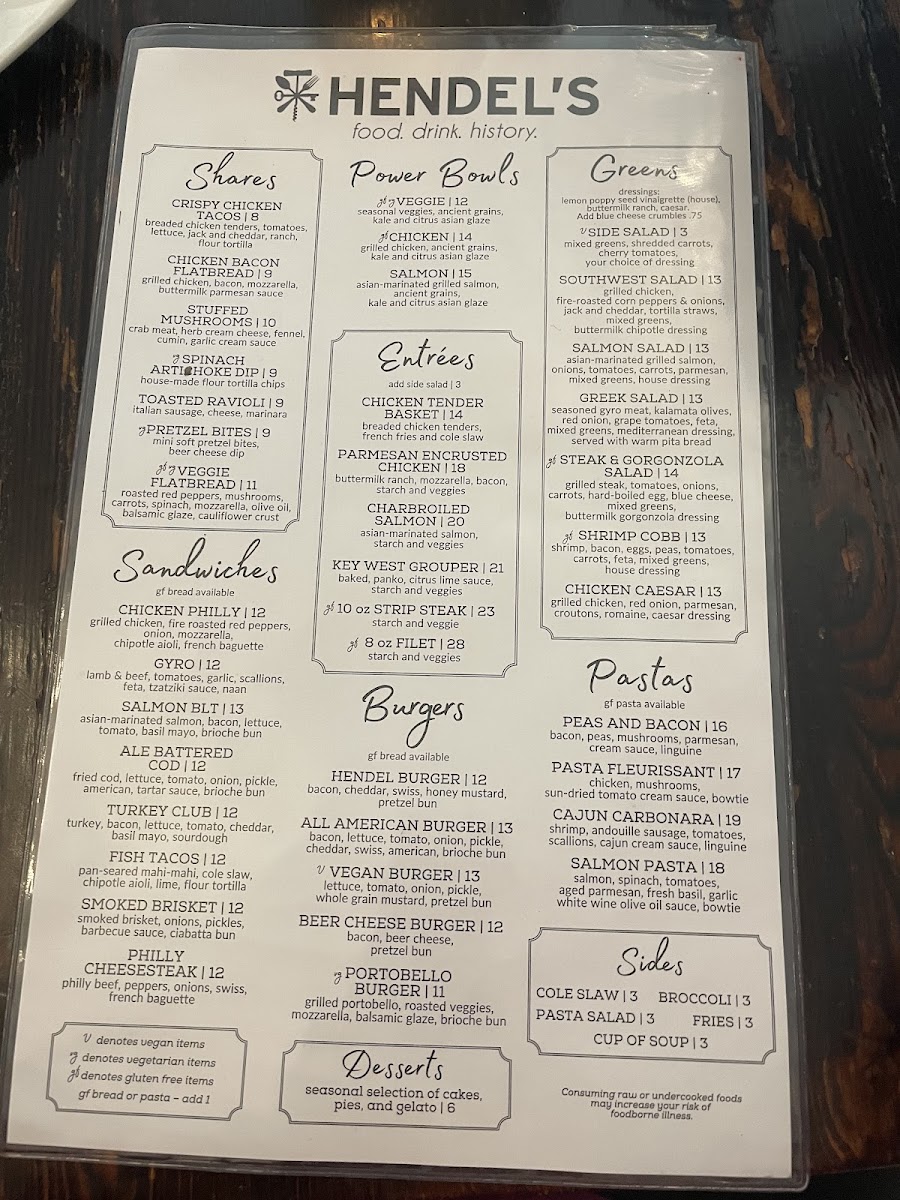 HENDEL'S
food. drink. history.
Shares
CRISPY CHICKEN
TACOS | 8
breaded chicken tenders, tomatoes,
lettuce, jack and cheddar, ranch,
flour tortilla
CHICKEN BACON
FLATBREAD | 9
grilled chicken, bacon, mozzarella,
buttermilk parmesan sauce
STUFFED
MUSHROOMS | 10
crab meat, herb cream cheese, fennel,
cumin, garlic cream sauce
vg SPINACH
ARTICHOKE DIP | 9
house-made flour tortilla chips
TOASTED RAVIOLI | 9
italian sausage, cheese, marinara
vg PRETZEL BITES | 9
mini soft pretzel bites,
beer cheese dip
gf vg VEGGIE
FLATBREAD | 11
roasted red peppers, mushrooms,
carrots, spinach, mozzarella, olive oil,
balsamic glaze, cauliflower crust
Sandwiches
gf bread available
CHICKEN PHILLY | 12
grilled chicken, fire roasted red peppers,
onion, mozzarella,
chipotle aioli, french baguette
GYRO | 12
lamb & beef, tomatoes, garlic, scallions,
feta, tzatziki sauce, naan
SALMON BLT | 13
asian-marinated salmon, bacon, lettuce,
tomato, basil mayo, brioche bun
ALE BATTERED
COD | 12
fried cod, lettuce, tomato, onion, pickle,
american, tartar sauce, brioche bun
TURKEY CLUB | 12
turkey, bacon, lettuce, tomato, cheddar,
basil mayo, sourdough
FISH TACOS | 12
pan-seared mahi-mahi, cole slaw,
chipotle aioli, lime, flour tortilla
SMOKED BRISKET | 12
smoked brisket, onions, pickles,
barbecue sauce, ciabatta bun
PHILLY
CHEESESTEAK | 12
philly beef, peppers, onions, swiss,
french baguette
v denotes vegan items
vg denotes vegetarian items
gf denotes gluten free items
gf bread or pasta – add 1
Power Bowls
gf vg VEGGIE | 12
seasonal veggies, ancient grains,
kale and citrus asian glaze
gf CHICKEN | 14
grilled chicken, ancient grains,
kale and citrus asian glaze
SALMON | 15
asian-marinated grilled salmon,
ancient grains,
kale and citrus asian glaze
Entrées
add side salad | 3
CHICKEN TENDER
BASKET | 14
breaded chicken tenders,
french fries and cole slaw
PARMESAN ENCRUSTED
CHICKEN | 18
buttermilk ranch, mozzarella, bacon,
starch and veggies
CHARBROILED
SALMON | 20
asian-marinated salmon,
starch and veggies
KEY WEST GROUPER | 21
baked, panko, citrus lime sauce,
starch and veggies
gf 10 oz STRIP STEAK | 23
starch and veggie
gf 8 oz FILET | 28
starch and veggies
Burgers
gf bread available
HENDEL BURGER | 12
bacon, cheddar, swiss, honey mustard,
pretzel bun
ALL AMERICAN BURGER | 13
bacon, lettuce, tomato, onion, pickle,
cheddar, swiss, american, brioche bun
v VEGAN BURGER | 13
lettuce, tomato, onion, pickle,
whole grain mustard, pretzel bun
BEER CHEESE BURGER | 12
bacon, beer cheese,
pretzel bun
vg PORTOBELLO
BURGER | 11
grilled portobello, roasted veggies,
mozzarella, balsamic glaze, brioche bun
Desserts
seasonal selection of cakes,
pies, and gelato | 6
Greens
dressings:
lemon poppy seed vinaigrette (house),
buttermilk ranch, caesar.
Add blue cheese crumbles .75
v SIDE SALAD | 3
mixed greens, shredded carrots,
cherry tomatoes,
your choice of dressing
SOUTHWEST SALAD | 13
grilled chicken,
fire-roasted corn peppers & onions,
jack and cheddar, tortilla straws,
mixed greens,
buttermilk chipotle dressing
SALMON SALAD | 13
asian-marinated grilled salmon,
onions, tomatoes, carrots, parmesan,
mixed greens, house dressing
GREEK SALAD | 13
seasoned gyro meat, kalamata olives,
red onion, grape tomatoes, feta,
mixed greens, mediterranean dressing,
served with warm pita bread
gf STEAK & GORGONZOLA
SALAD | 14
grilled steak, tomatoes, onions,
carrots, hard-boiled egg, blue cheese,
mixed greens,
buttermilk gorgonzola dressing
gf SHRIMP COBB | 13
shrimp, bacon, eggs, peas, tomatoes,
carrots, feta, mixed greens,
house dressing
CHICKEN CAESAR | 13
grilled chicken, red onion, parmesan,
croutons, romaine, caesar dressing
Pastas
gf pasta available
PEAS AND BACON | 16
bacon, peas, mushrooms, parmesan,
cream sauce, linguine
PASTA FLEURISSANT | 17
chicken, mushrooms,
sun-dried tomato cream sauce, bowtie
CAJUN CARBONARA | 19
shrimp, andouille sausage, tomatoes,
scallions, cajun cream sauce, linguine
SALMON PASTA | 18
salmon, spinach, tomatoes,
aged parmesan, fresh basil, garlic
white wine olive oil sauce, bowtie
Sides
COLE SLAW | 3 BROCCOLI | 3
PASTA SALAD | 3 FRIES | 3
CUP OF SOUP | 3
Consuming raw or undercooked foods
may increase your risk of
foodborne illness.